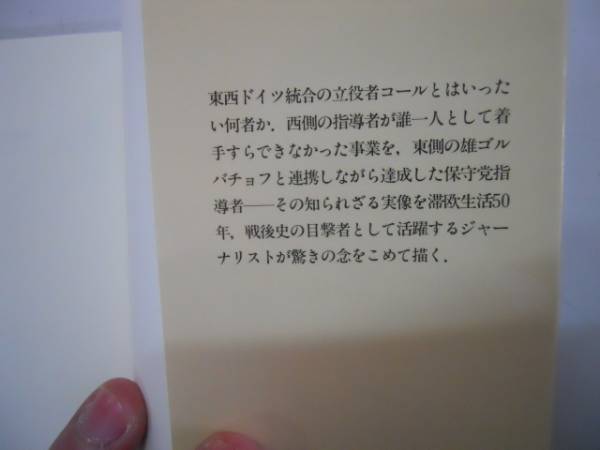 東西ドイツ統合の立役者コールとはいった
い何者か．西側の指導者が誰一人として着
手すらできなかった事業を，東側の雄ゴル
バチョフと連携しながら達成した保守党指
導者――その知られざる実像を滞欧生活50
年，戦後史の目撃者として活躍するジャー
ナリストが驚きの念をこめて描く．